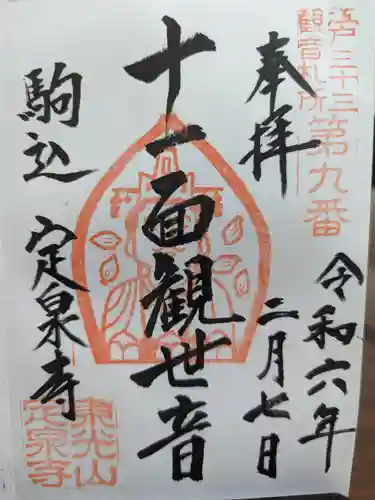 江戸三十三
観音札所
第九番
奉拝
令和六年
二月七日
十一面観世音
駒込
定泉寺
東光山
定泉寺